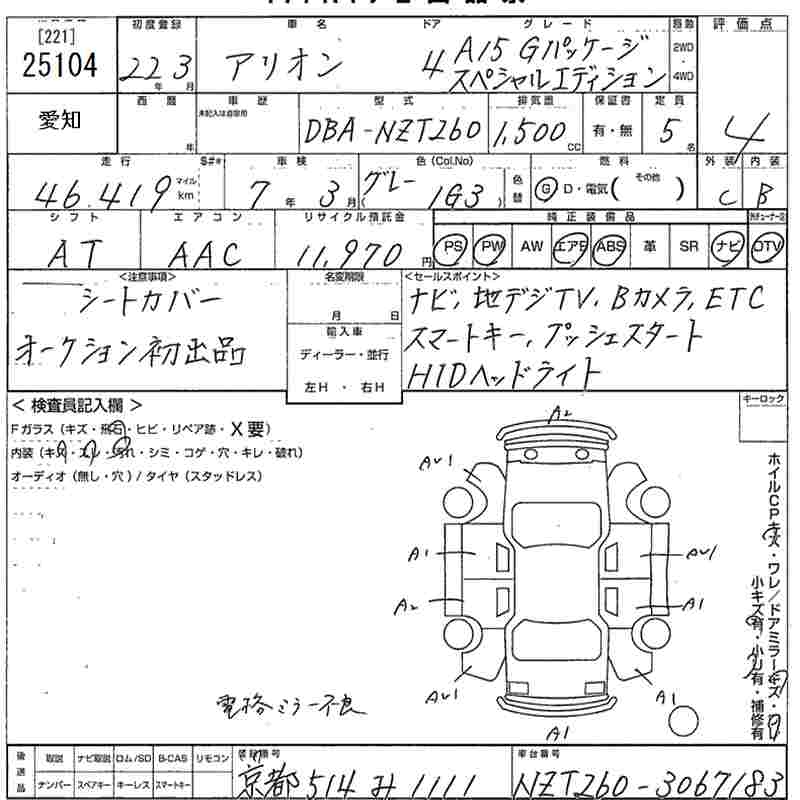 [221]
25104
愛知
初度登録 車名 ドア グレード 評価点
22年 3月 アリオン 4 A15 Gパッケージ
スペシャルエディション
2WD
4WD
西暦 車歴 型式 排気量 保証書 定員
未記入は自家用
年 DBA-NZT260 1,500cc 有・無 5名 4
走行 S#* 車検 色(Col.No) 燃料 外装 内装
46,419 マイル km 7年 3月 グレー 1G3 色替 G D・電気(その他 ) C B
シフト エアコン リサイクル預託金 純正装備品
AT AAC 11,970円 PS PW AW エアB ABS 革 SR ナビ TV
<注意事項> 名変期限 <セールスポイント>
シートカバー
オークション初出品
月 日
輸入車
ディーラー・並行
左H ・ 右H
ナビ, 地デジTV, Bカメラ, ETC
スマートキー, プッシュスタート
HIDヘッドライト
キーロック
< 検査員記入欄 >
Fガラス(キズ・飛石・ヒビ・リペア跡・X要)
内装(キズ・スレ・汚れ・シミ・コゲ・穴・キレ・破れ)
オーディオ(無し・穴)/タイヤ(スタッドレス)
A2
AU1
A1 AU1
A2 A1
AU1 A1
A1
電格ミラー不良
ホイルCPキズ・ワレ/ドアミラーキズ・
小キズ有・小凹有・補修有
後送品 取説 ナビ取説 ロム/SD B-CAS リモコン
ナンバー スペアキー キーレス スマートキー
登録番号 車台番号
京都 514 み 1111 NZT260-3067183